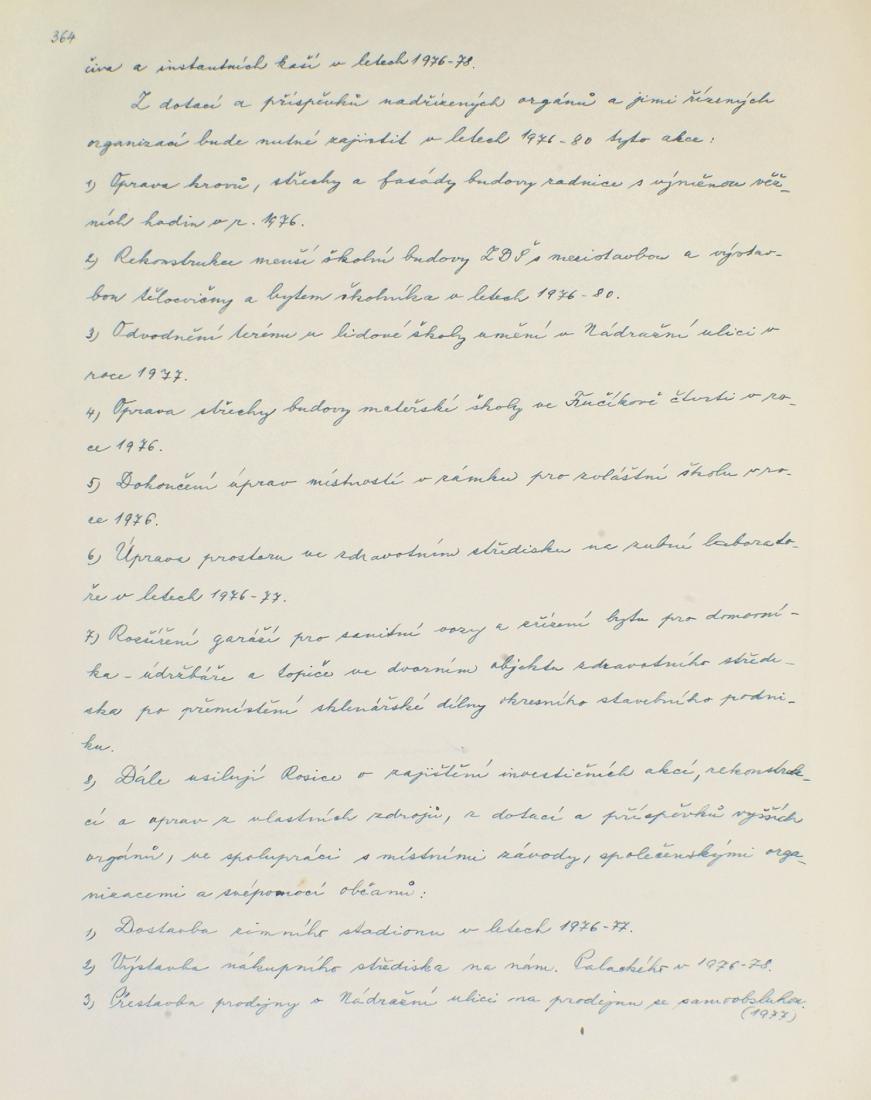 364
čiva a instantních kaší v letech 1976-78.
Z dotací a příspěvků nadřízených orgánů a jimi řízených
organizací bude nutné zajistit v letech 1976-80 tyto akce:
1) Oprava krovů, střechy a fasády budovy radnice s výměnou věž_
ních hodin v r. 1976.
2) Rekonstrukce menší školní budovy ZDŠ s mezistavbou a výstav-
bou tělocvičny a bytem školníka v letech 1976-80.
3) Odvodnění terénu u lidové školy umění v Nádražní ulici v
roce 1977.
4) Oprava střechy budovy mateřské školy ve Fučíkově čtvrti v ro-
ce 1976.
5) Dokončení úprav místností v zámku pro zvláštní školu v ro-
ce 1976.
6) Úprava prostoru ve zdravotním středisku na zubní laborato-
ře v letech 1976-77.
7) Rozšíření garáží pro sanitní vozy a zřízení bytu pro domovní-
ka-údržbáře a topiče ve dvorním objektu zdravotního středi-
ska po přemístění sklenářské dílny okresního stavebního podni-
ku.
8) Dále usilují Rosice o zajištění investičních akcí, rekonstruk-
cí a oprav z vlastních zdrojů, z dotací a příspěvků vyšších
orgánů, ve spolupráci s místními závody, společenskými orga_
nizacemi a svépomocí občanů:
1) Dostavba zimního stadionu v letech 1976-77.
2) Výstavba nákupního střediska na nám. Palackého v 1976-78.
3) Přestavba prodejny v Nádražní ulici na prodejnu se samoobsluhou.
(1977)